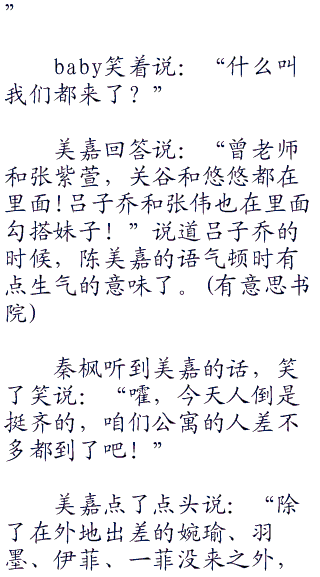 ”
baby笑着说：“什么叫
我们都来了？”
美嘉回答说：“曾老师
和张紫萱，关谷和悠悠都在
里面!吕子乔和张伟也在里面
勾搭妹子！”说道吕子乔的
时候，陈美嘉的语气顿时有
点生气的意味了。(有意思书
院)
秦枫听到美嘉的话，笑
了笑说：“嚯，今天人倒是
挺齐的，咱们公寓的人差不
多都到了吧！”
美嘉点了点头说：“除
了在外地出差的婉瑜、羽
墨、伊菲、一菲没来之外，